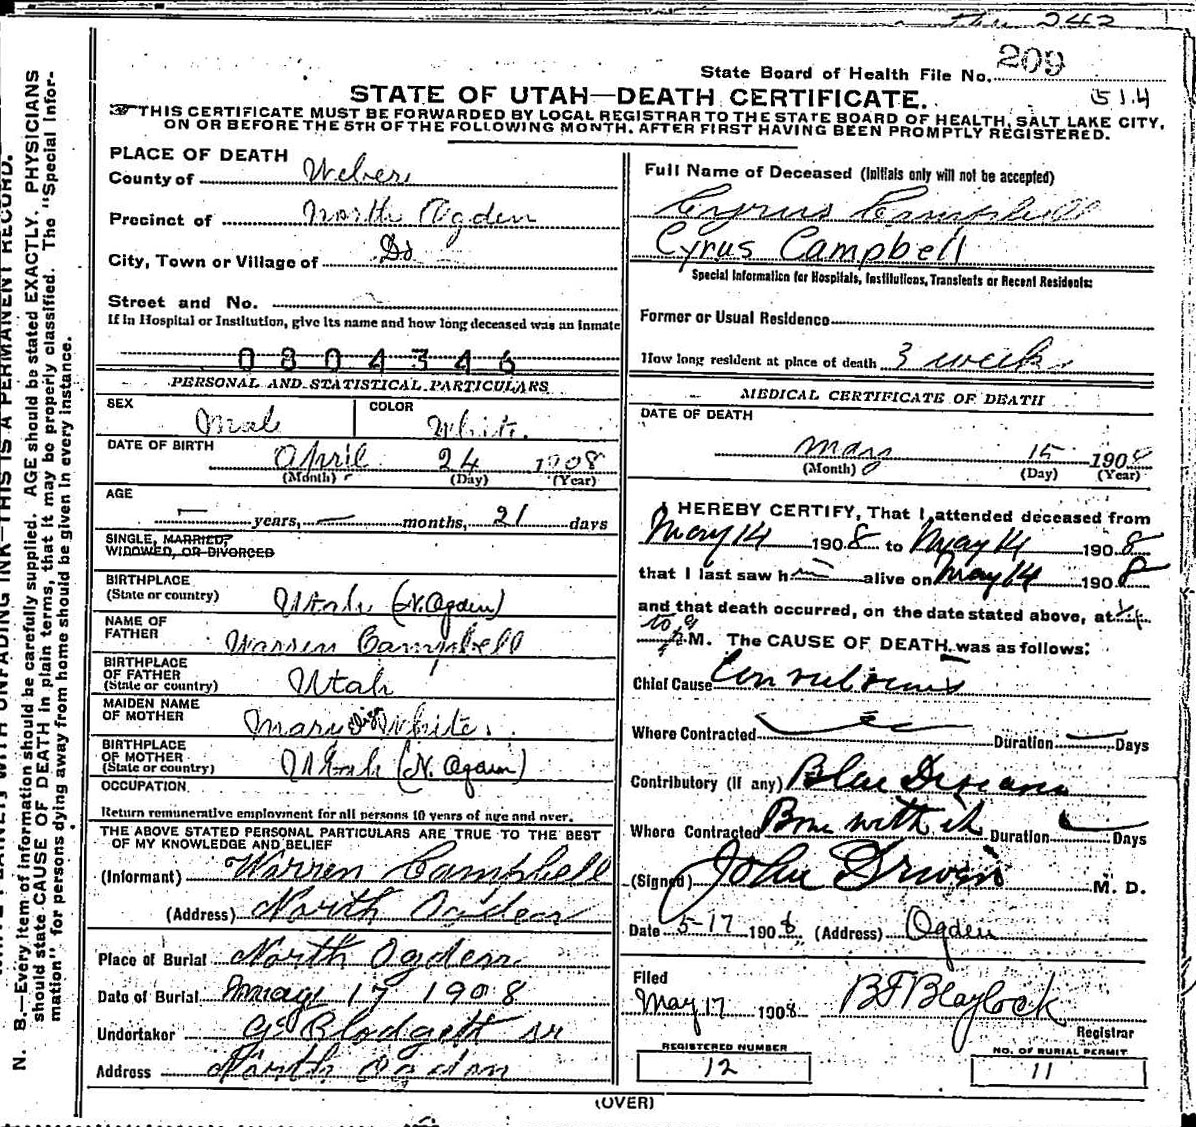 242
State Board of Health File No. 209
STATE OF UTAH—DEATH CERTIFICATE. 514
THIS CERTIFICATE MUST BE FORWARDED BY LOCAL REGISTRAR TO THE STATE BOARD OF HEALTH, SALT LAKE CITY,
ON OR BEFORE THE 5TH OF THE FOLLOWING MONTH, AFTER FIRST HAVING BEEN PROMPTLY REGISTERED.
PLACE OF DEATH
County of Weber
Precinct of North Ogden
City, Town or Village of Do
Street and No.
If in Hospital or Institution, give its name and how long deceased was an inmate
0804346
PERSONAL AND STATISTICAL PARTICULARS
SEX Male COLOR White.
DATE OF BIRTH April 24 1908
(Month) (Day) (Year)
AGE
— years, — months, 21 days
SINGLE, MARRIED?
WIDOWED, OR DIVORCED
BIRTHPLACE
(State or country) Utah (N. Ogden)
NAME OF
FATHER Warren Campbell
BIRTHPLACE
OF FATHER
(State or country) Utah
MAIDEN NAME
OF MOTHER Mary White.
BIRTHPLACE
OF MOTHER
(State or country) Utah (N. Ogden)
OCCUPATION
Return remunerative employment for all persons 10 years of age and over.
THE ABOVE STATED PERSONAL PARTICULARS ARE TRUE TO THE BEST
OF MY KNOWLEDGE AND BELIEF
(Informant) Warren Campbell
(Address) North Ogden
Place of Burial North Ogden
Date of Burial May 17 1908
Undertaker Blodgett
Address North Ogden
Full Name of Deceased (Initials only will not be accepted)
Cyrus Campbell
Cyrus Campbell
Special Information for Hospitals, Institutions, Transients or Recent Residents:
Former or Usual Residence
How long resident at place of death 3 weeks
MEDICAL CERTIFICATE OF DEATH
DATE OF DEATH
May 15 1908
(Month) (Day) (Year)
I HEREBY CERTIFY, That I attended deceased from
May 14 1908 to May 14 1908
that I last saw him alive on May 14 1908
and that death occurred, on the date stated above, at
M. The CAUSE OF DEATH was as follows:
Chief Cause Convulsions
Where Contracted Duration — Days
Contributory (if any) Blue Disease
Where Contracted Born with it Duration Days
(Signed) John Driver M. D.
Date 5-17 1908 (Address) Ogden
Filed
May 17 1908 B F Blaylock
Registrar
REGISTERED NUMBER
12
NO. OF BURIAL PERMIT
11
(OVER)
N. B.—Every item of information should be carefully supplied. AGE should be stated EXACTLY. PHYSICIANS
should state CAUSE OF DEATH in plain terms, that it may be properly classified. The "Special Infor-
mation" for persons dying away from home should be given in every instance.